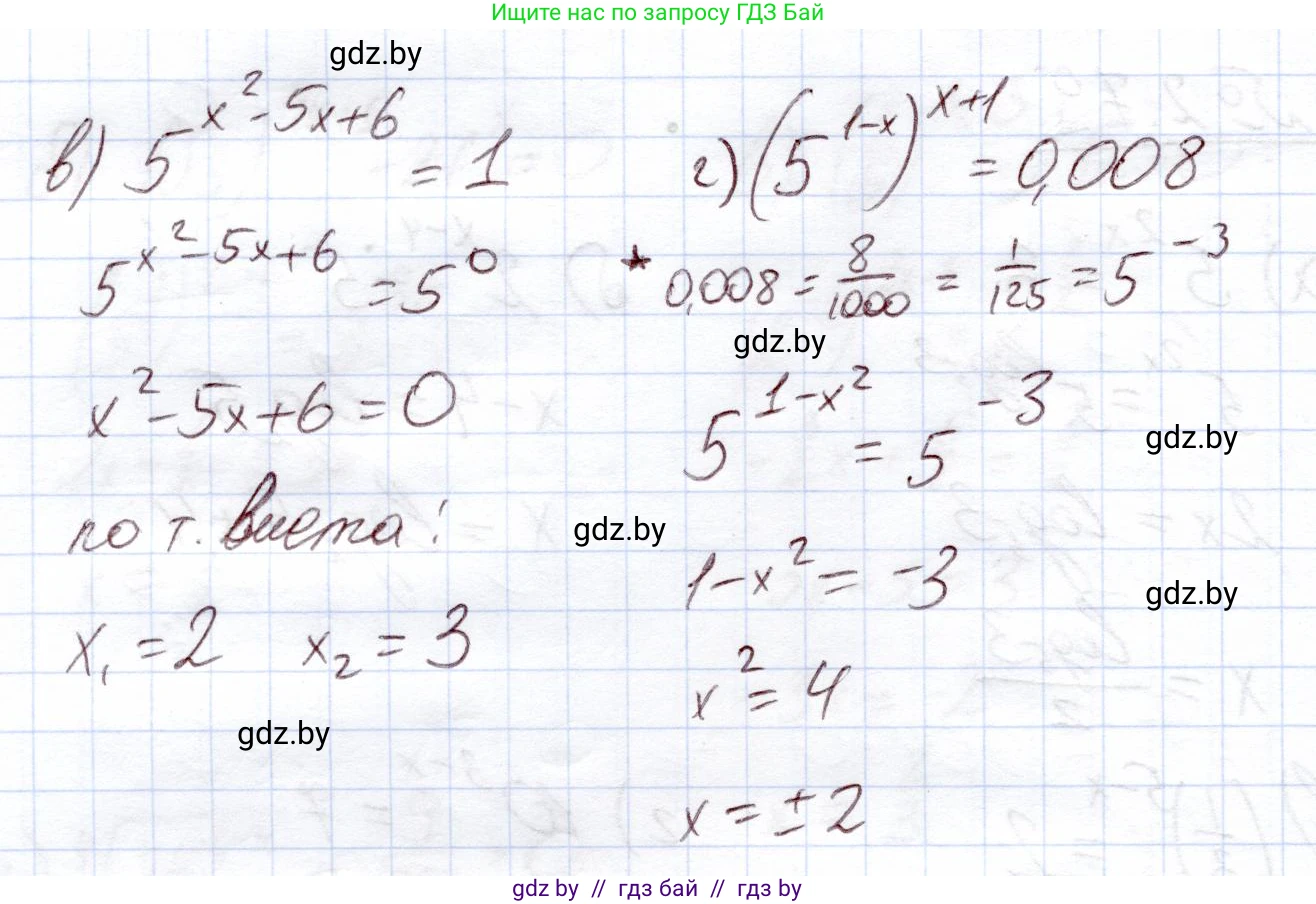 Ищите нас по запросу ГДЗ Бай
gdz.by
в) 5^(x²-5x+6) = 1
5^(x²-5x+6) = 5^0
x²-5x+6=0
по т. Виета:
x₁=2 x₂=3
gdz.by
г) (5^(1-x))^(x+1) = 0,008
* 0,008 = 8/1000 = 1/125 = 5^(-3)
gdz.by
5^(1-x²) = 5^(-3)
gdz.by
gdz.by
1-x² = -3
gdz.by
x² = 4
x = ±2
gdz.by // гдз бай // гдз by